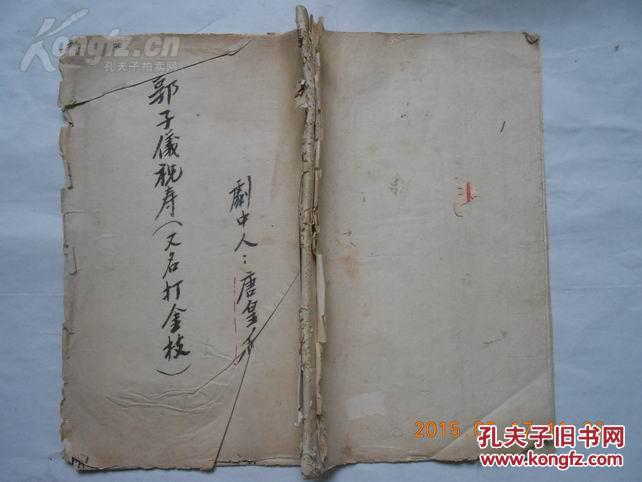 Kongfz.cn
孔夫子拍卖网
郭子儀祝寿（又名打金枝）
劇中人：唐皇
2015
孔夫子旧书网
www.kongfz.com